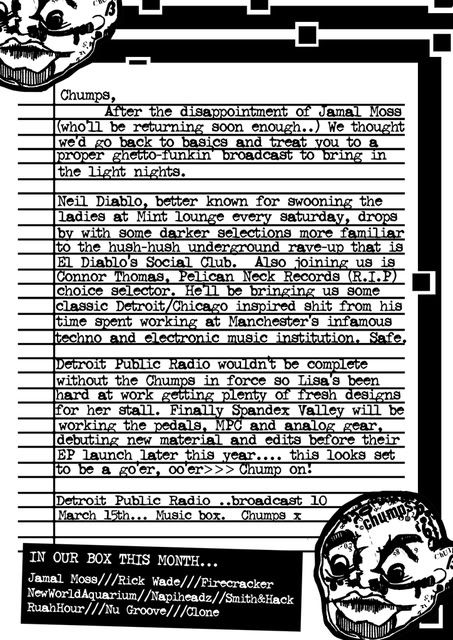 Chumps,
After the disappointment of Jamal Moss
(who'll be returning soon enough..) We thought
we'd go back to basics and treat you to a
proper ghetto-funkin' broadcast to bring in
the light nights.
Neil Diablo, better known for swooning the
ladies at Mint lounge every saturday, drops
by with some darker selections more familiar
to the hush-hush underground rave-up that is
El Diablo's Social Club. Also joining us is
Connor Thomas, Pelican Neck Records (R.I.P)
choice selector. He'll be bringing us some
classic Detroit/Chicago inspired shit from his
time spent working at Manchester's infamous
techno and electronic music institution. Safe.
Detroit Public Radio wouldn't be complete
without the Chumps in force so Lisa's been
hard at work getting plenty of fresh designs
for her stall. Finally Spandex Valley will be
working the pedals, MPC and analog gear,
debuting new material and edits before their
EP launch later this year.... this looks set
to be a go'er, oo'er>>> Chump on!
Detroit Public Radio ..broadcast 10
March 15th... Music box. Chumps x
chumps
IN OUR BOX THIS MONTH...
Jamal Moss///Rick Wade///Firecracker
NewWorldAquarium//Napiheadz//Smith&Hack
RuahHour///Nu Groove///Clone